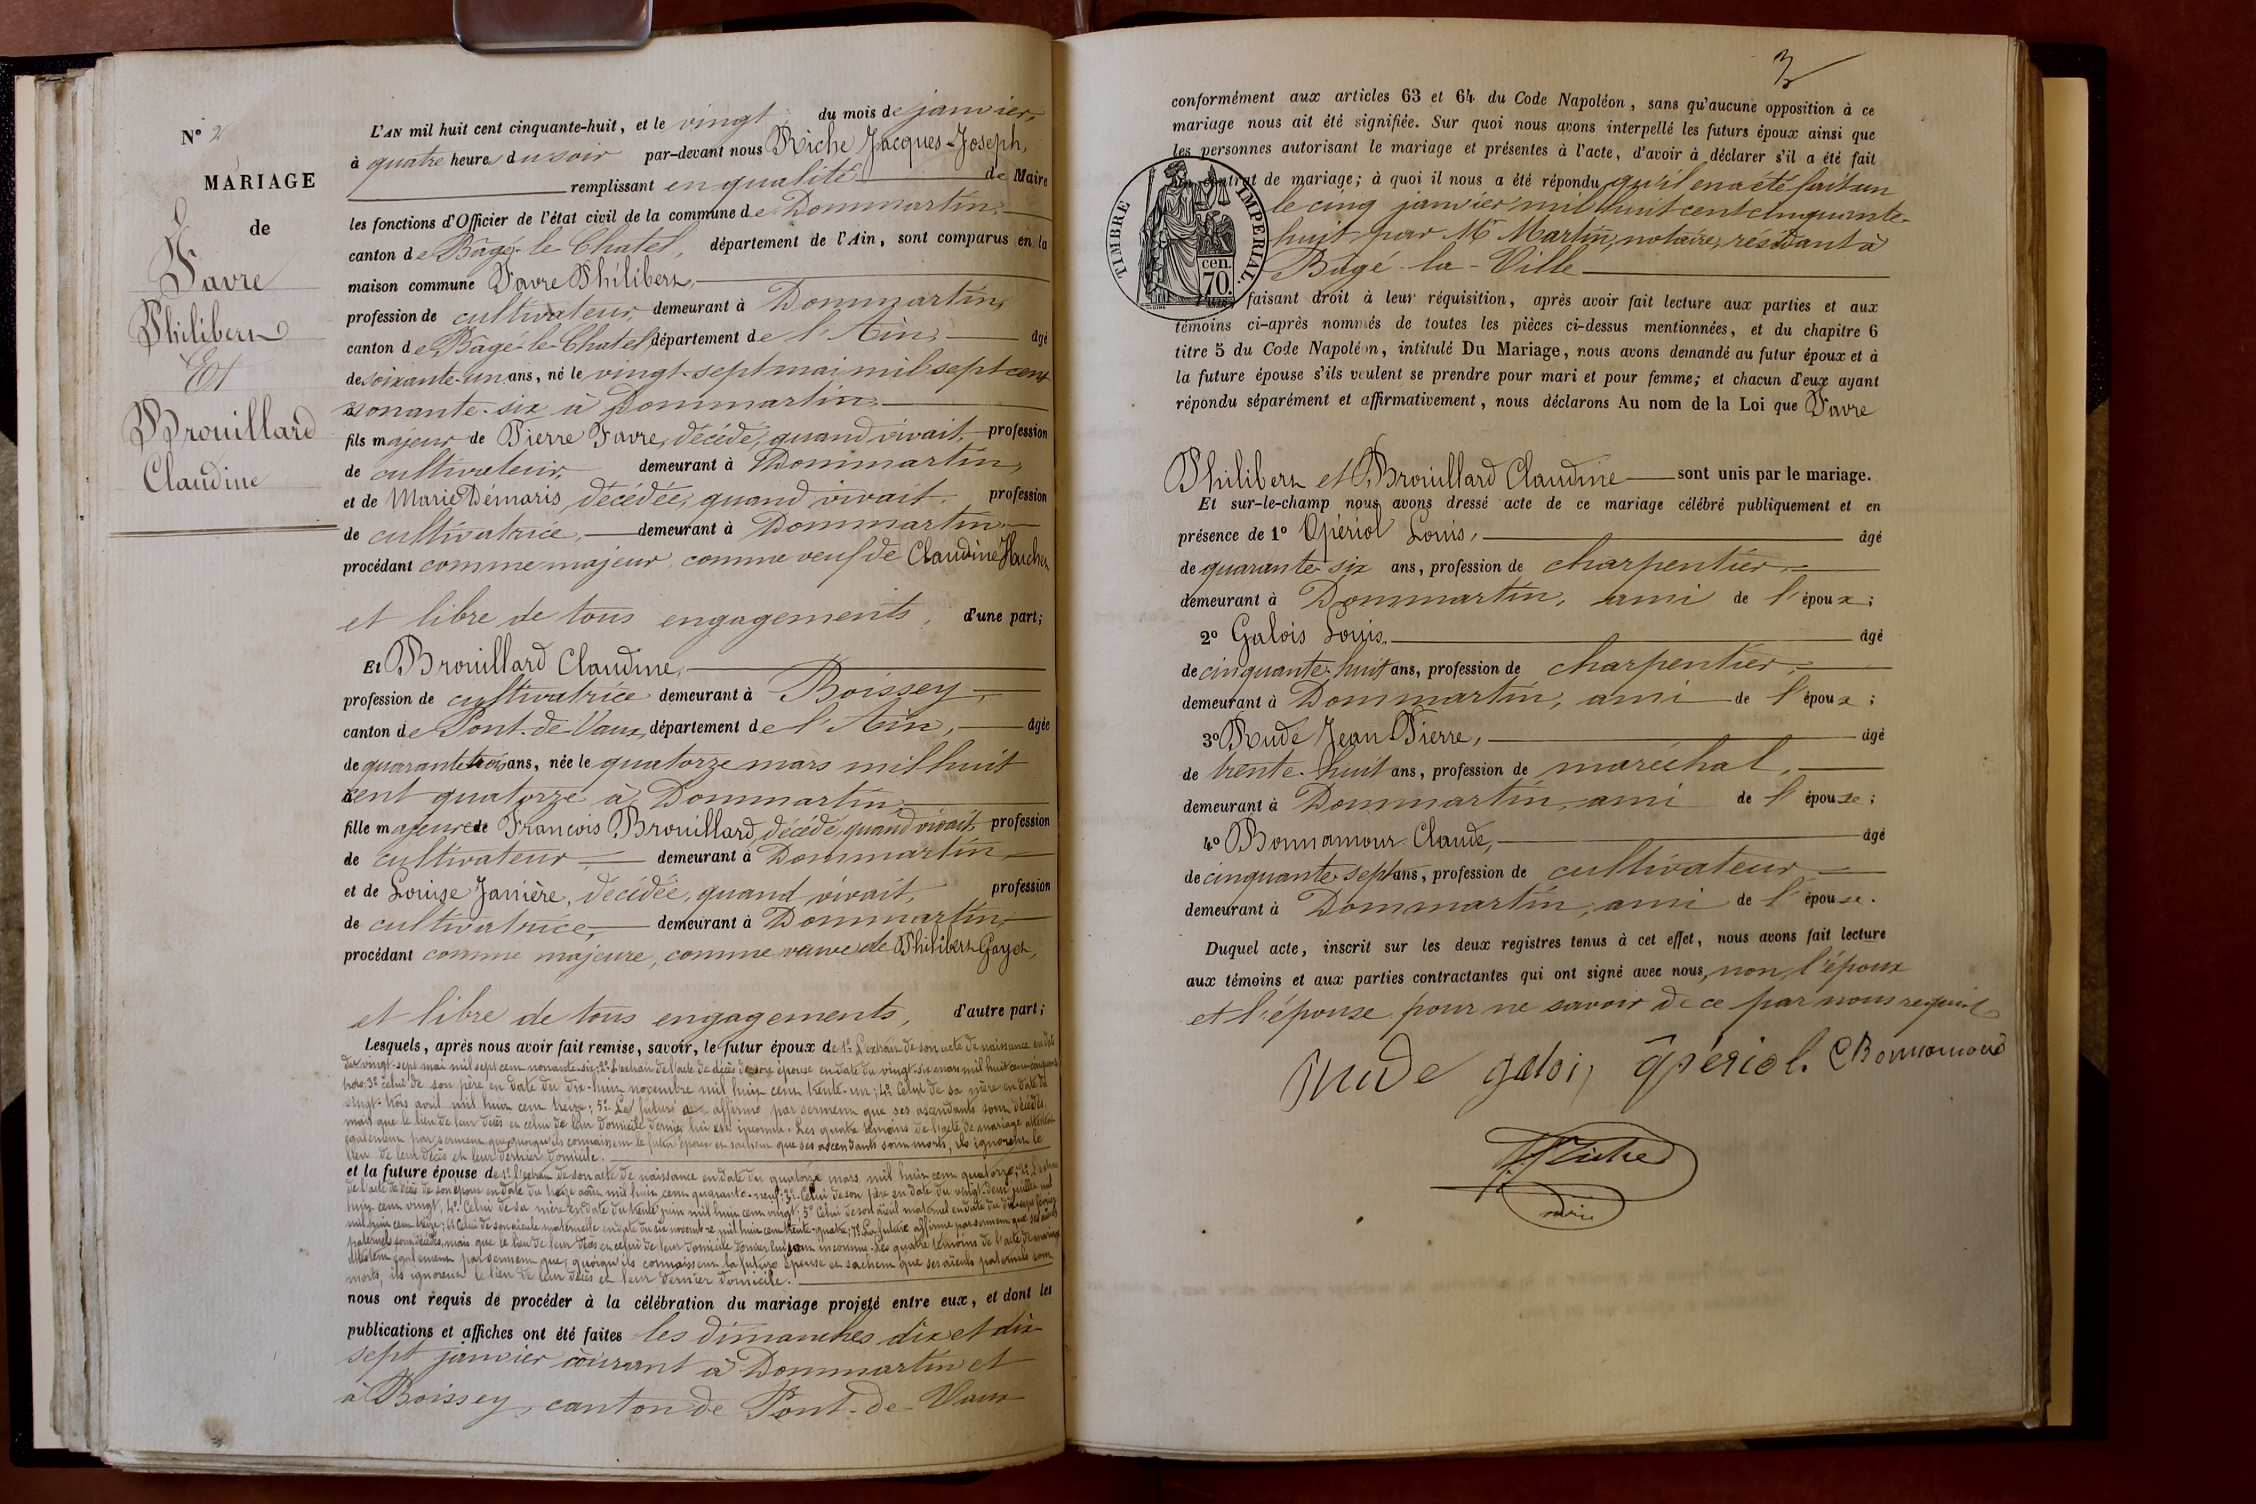 N° 2
MARIAGE
de
Favre
Philibert
Et
Brouillard
Claudine
L'AN mil huit cent cinquante-huit, et le vingt du mois de janvier,
à quatre heures du soir par-devant nous Riche Jacques-Joseph,
remplissant en qualité de Maire
les fonctions d'Officier de l'état civil de la commune de Dommartin,
canton de Bâgé-le-Chatel, département de l'Ain, sont comparus en la
maison commune Favre Philibert,
profession de cultivateur demeurant à Dommartin,
canton de Bâgé-le-Chatel, département de l'Ain, âgé
de soixante-un ans, né le vingt-sept mai mil sept cent
nonante-six à Dommartin,
fils majeur de Pierre Favre, décédé, quand vivait, profession
de cultivateur, demeurant à Dommartin,
et de Marie Démaris, décédée, quand vivait, profession
de cultivatrice, demeurant à Dommartin,
procédant comme majeur, comme veuf de Claudine
et libre de tous engagements, d'une part;
Et Brouillard Claudine,
profession de cultivatrice demeurant à Boissey,
canton de Pont-de-Vaux, département de l'Ain, âgée
de quarante trois ans, née le quatorze mars mil huit
cent quatorze à Dommartin,
fille majeure de Francois Brouillard, décédé, quand vivait, profession
de cultivateur, demeurant à Dommartin,
et de Louise Janière, décédée, quand vivait, profession
de cultivatrice, demeurant à Dommartin,
procédant comme majeure, comme veuve de Philibert Gayet,
et libre de tous engagements, d'autre part;
Lesquels, après nous avoir fait remise, savoir, le futur époux de 1° L'extrait de son acte de naissance en date
du vingt-sept mai mil sept cent nonante-six; 2° L'extrait de l'acte de décès de son épouse en date du vingt-six mars mil huit cent cinquante
trois; 3° celui de son père en date du dix-huit novembre mil huit cent trente-un; 4° Celui de sa mère en date du
vingt-trois avril mil huit cent treize; 5° Le futur a affirmé par serment que ses ascendants sont décédés
mais que le lieu de leur décès et celui de leur domicile dernier lui est inconnu. Les quatre témoins de l'acte de mariage attestent
également par serment que, quoiqu'ils connaissent le futur époux et sachent que ses ascendants sont morts, ils ignorent le
lieu de leur décès et leur dernier domicile.
et la future épouse de 1° l'extrait de son acte de naissance en date du quatorze mars mil huit cent quatorze; 2° L'extrait
de l'acte de décès de son époux en date du treize août mil huit cent quarante-neuf; 3° Celui de son père en date du vingt-deux juillet mil
huit cent vingt; 4° Celui de sa mère en date du trente juin mil huit cent vingt; 5° Celui de son aïeul maternel en date du dix-sept février
mil huit cent treize; 6° Celui de son aïeule maternelle en date du six novembre mil huit cent trente-quatre; 7° La future affirme par serment que ses aïeuls
paternels sont décédés, mais que le lieu de leur décès et celui de leur domicile dernier lui sont inconnus. Les quatre témoins de l'acte de mariage
attestent également par serment que, quoiqu'ils connaissent la future épouse et sachent que ses aïeuls paternels sont
morts, ils ignorent le lieu de leur décès et leur dernier domicile.
nous ont requis de procéder à la célébration du mariage projeté entre eux, et dont les
publications et affiches ont été faites les dimanches dix et dix-
sept janvier courant à Dommartin et
à Boissey, canton de Pont-de-Vaux
3
conformément aux articles 63 et 64 du Code Napoléon, sans qu'aucune opposition à ce
mariage nous ait été signifiée. Sur quoi nous avons interpellé les futurs époux ainsi que
les personnes autorisant le mariage et présentes à l'acte, d'avoir à déclarer s'il a été fait
un contrat de mariage; à quoi il nous a été répondu qu'il en a été fait un
le cinq janvier mil huit cent cinquante-
huit par Mr Martin, notaire, résidant à
Bâgé-la-Ville
TIMBRE IMPÉRIAL.
70. cen.
faisant droit à leur réquisition, après avoir fait lecture aux parties et aux
témoins ci-après nommés de toutes les pièces ci-dessus mentionnées, et du chapitre 6
titre 5 du Code Napoléon, intitulé Du Mariage, nous avons demandé au futur époux et à
la future épouse s'ils veulent se prendre pour mari et pour femme; et chacun d'eux ayant
répondu séparément et affirmativement, nous déclarons Au nom de la Loi que Favre
Philibert et Brouillard Claudine sont unis par le mariage.
Et sur-le-champ nous avons dressé acte de ce mariage célébré publiquement et en
présence de 1° Opériol Louis, âgé
de quarante-six ans, profession de charpentier,
demeurant à Dommartin, ami de l'époux;
2° Galois Louis, âgé
de cinquante-huit ans, profession de charpentier,
demeurant à Dommartin, ami de l'époux;
3° Rude Jean-Pierre, âgé
de trente-huit ans, profession de maréchal,
demeurant à Dommartin, ami de l'épouse;
4° Bonnamour Claude, âgé
de cinquante-sept ans, profession de cultivateur,
demeurant à Dommartin, ami de l'épouse.
Duquel acte, inscrit sur les deux registres tenus à cet effet, nous avons fait lecture
aux témoins et aux parties contractantes qui ont signé avec nous, non l'époux
et l'épouse pour ne savoir de ce par nous requis
Rude galois opériol. C Bonnamour
J J Riche